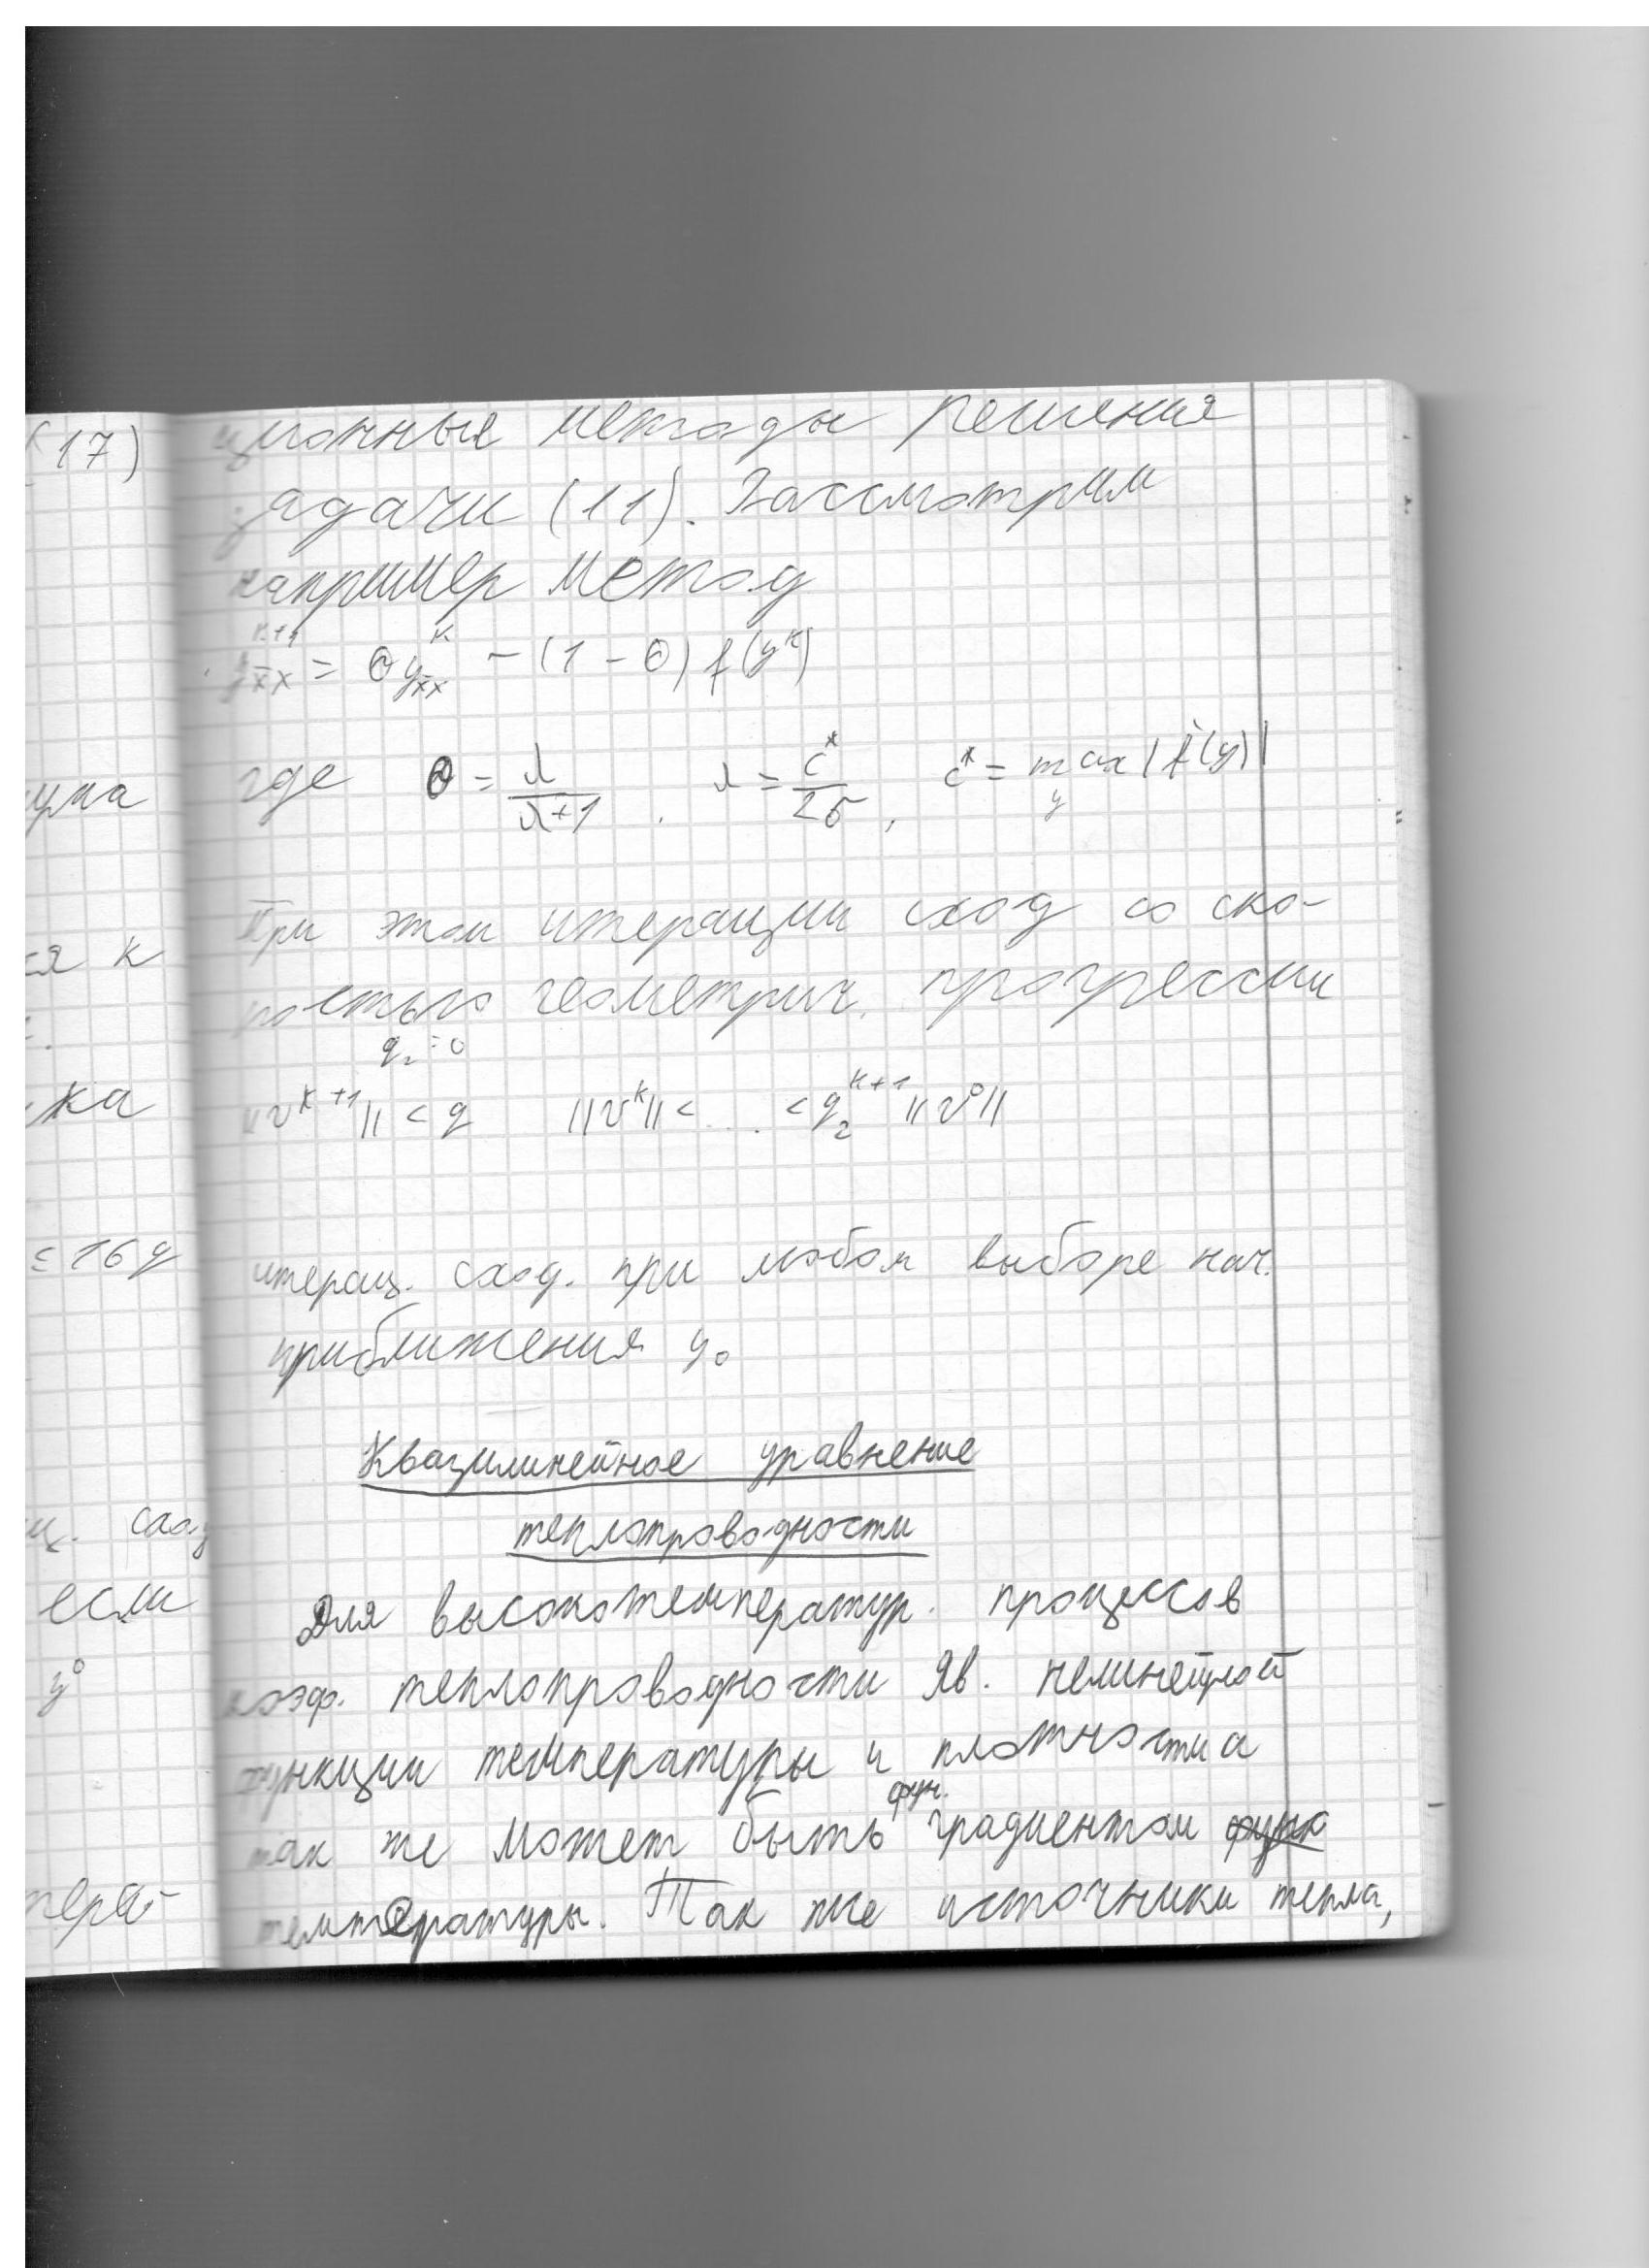 (17)
ционные методы решения
задачи (11). Рассмотрим
например метод
y^{k+1}_{x̄x} = θ y^{k}_{x̄x} - (1 - θ) f(y^k)
где θ = λ/(λ+1), λ = c*/28, c* = max_y |f'(y)|
При этом итерации сход со ско-
ростью геометрич. прогрессии
q₂ = 0
||v^{k+1}|| < q ||v^k|| < ... < q₂^{k+1} ||v⁰||
итерац. сход. при любом выборе нач.
приближения y₀
Квазилинейное уравнение
теплопроводности
Для высокотемператур. процессов
коэф. теплопроводности яв. нелинейной
функции температуры и плотности а
так же может быть фун. градиентом
температуры. Так же источники тепла,
ся к
жа
≤ 16 q
сход
если
y⁰